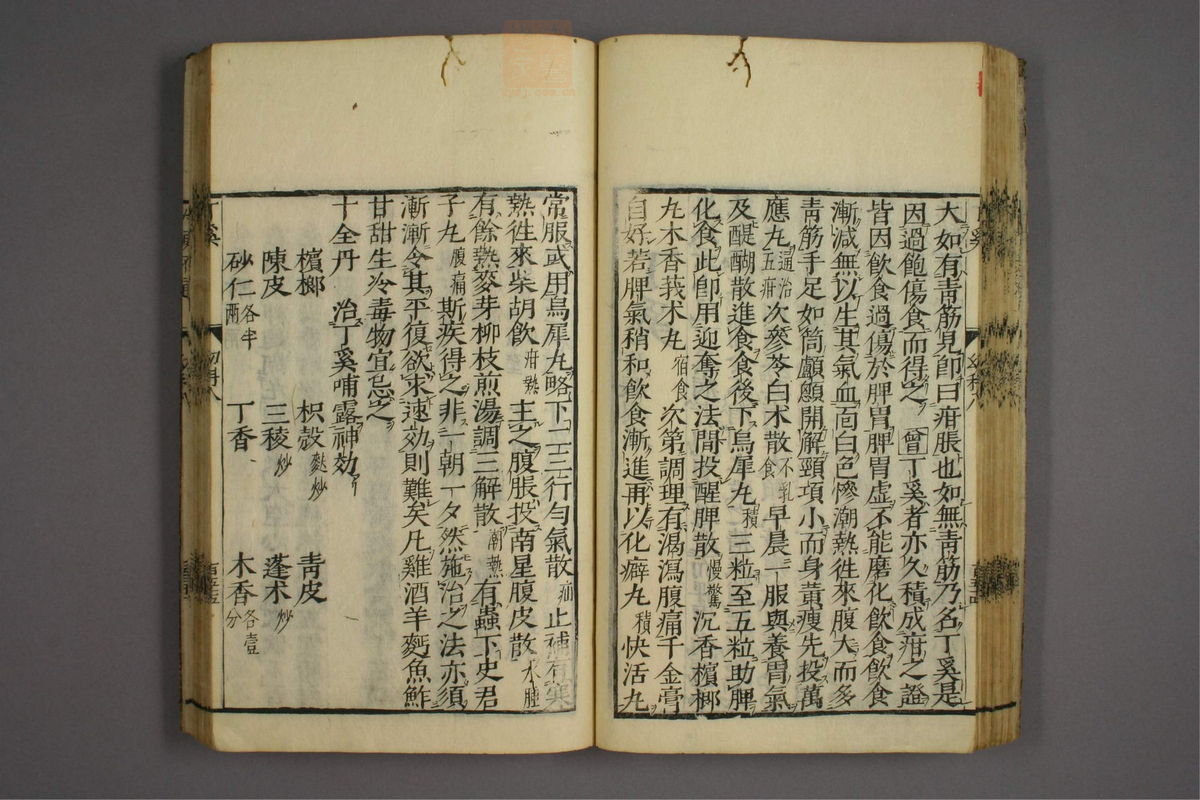 大如有青筋見卽曰疳脹也如無青筋乃名丁奚是
因過飽傷食而得之 曾 丁奚者亦久積成疳之證
皆因飲食過傷於脾胃脾胃虛不能磨化飲食飲食
漸減無以生其氣血面白色慘潮熱徃來腹大而多
青筋手足如筒顱顖開解頸項小而身黃瘦先投萬
應丸通治五疳次參苓白朮散不乳食早晨一服與養胃氣
及醍醐散進食食後下烏犀丸積三粒至五粒助脾
化食此卽用迎奪之法間投醒脾散慢驚沉香檳榔
丸木香莪朮丸宿食次第調理有渴瀉腹痛千金膏
自好若脾氣稍和飲食漸進再以化癖丸積快活丸
常服或用烏犀丸略下二三行勻氣散疝止補有寒
熱徃來柴胡飲疳熱主之腹脹投南星腹皮散水腫
有餘熱麥芽柳枝煎湯調三解散潮熱有蟲下史君
子丸腹痛斯疾得之非一朝一夕然施治之法亦須
漸漸令其平復欲求速効則難矣凡雞酒羊麪魚鮓
甘甜生冷毒物宜忌之
十全丹 治丁奚哺露神効
檳榔 枳殼麩炒 青皮
陳皮 三稜炒 蓬朮炒
砂仁各半兩 丁香 木香各壹分